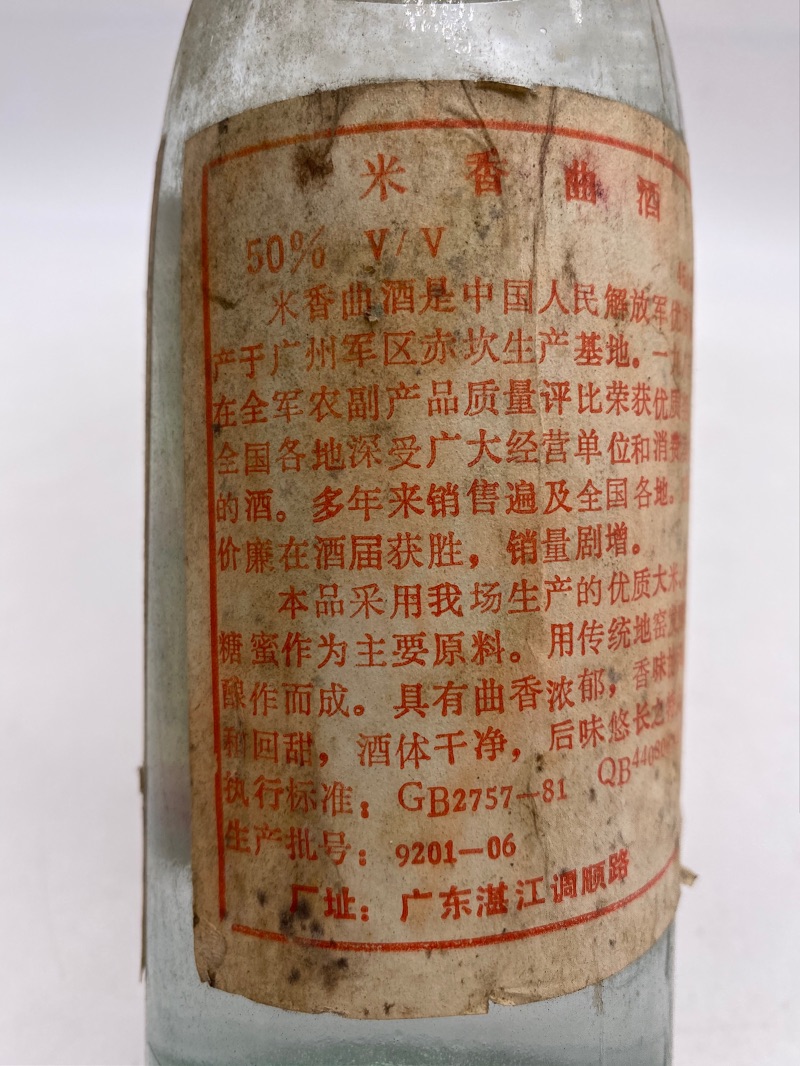 米香曲酒
50% V/V
米香曲酒是中国人民解放军
产于广州军区赤坎生产基地。一
在全军农副产品质量评比荣获优质
全国各地深受广大经营单位和消费
的酒。多年来销售遍及全国各地。
价廉在酒届获胜，销量剧增。
本品采用我场生产的优质大米、
糖蜜作为主要原料。用传统地窑发
酿作而成。具有曲香浓郁，香味
和回甜，酒体干净，后味悠长之
执行标准：GB2757—81 QB440
生产批号：9201—06
厂址：广东湛江调顺路